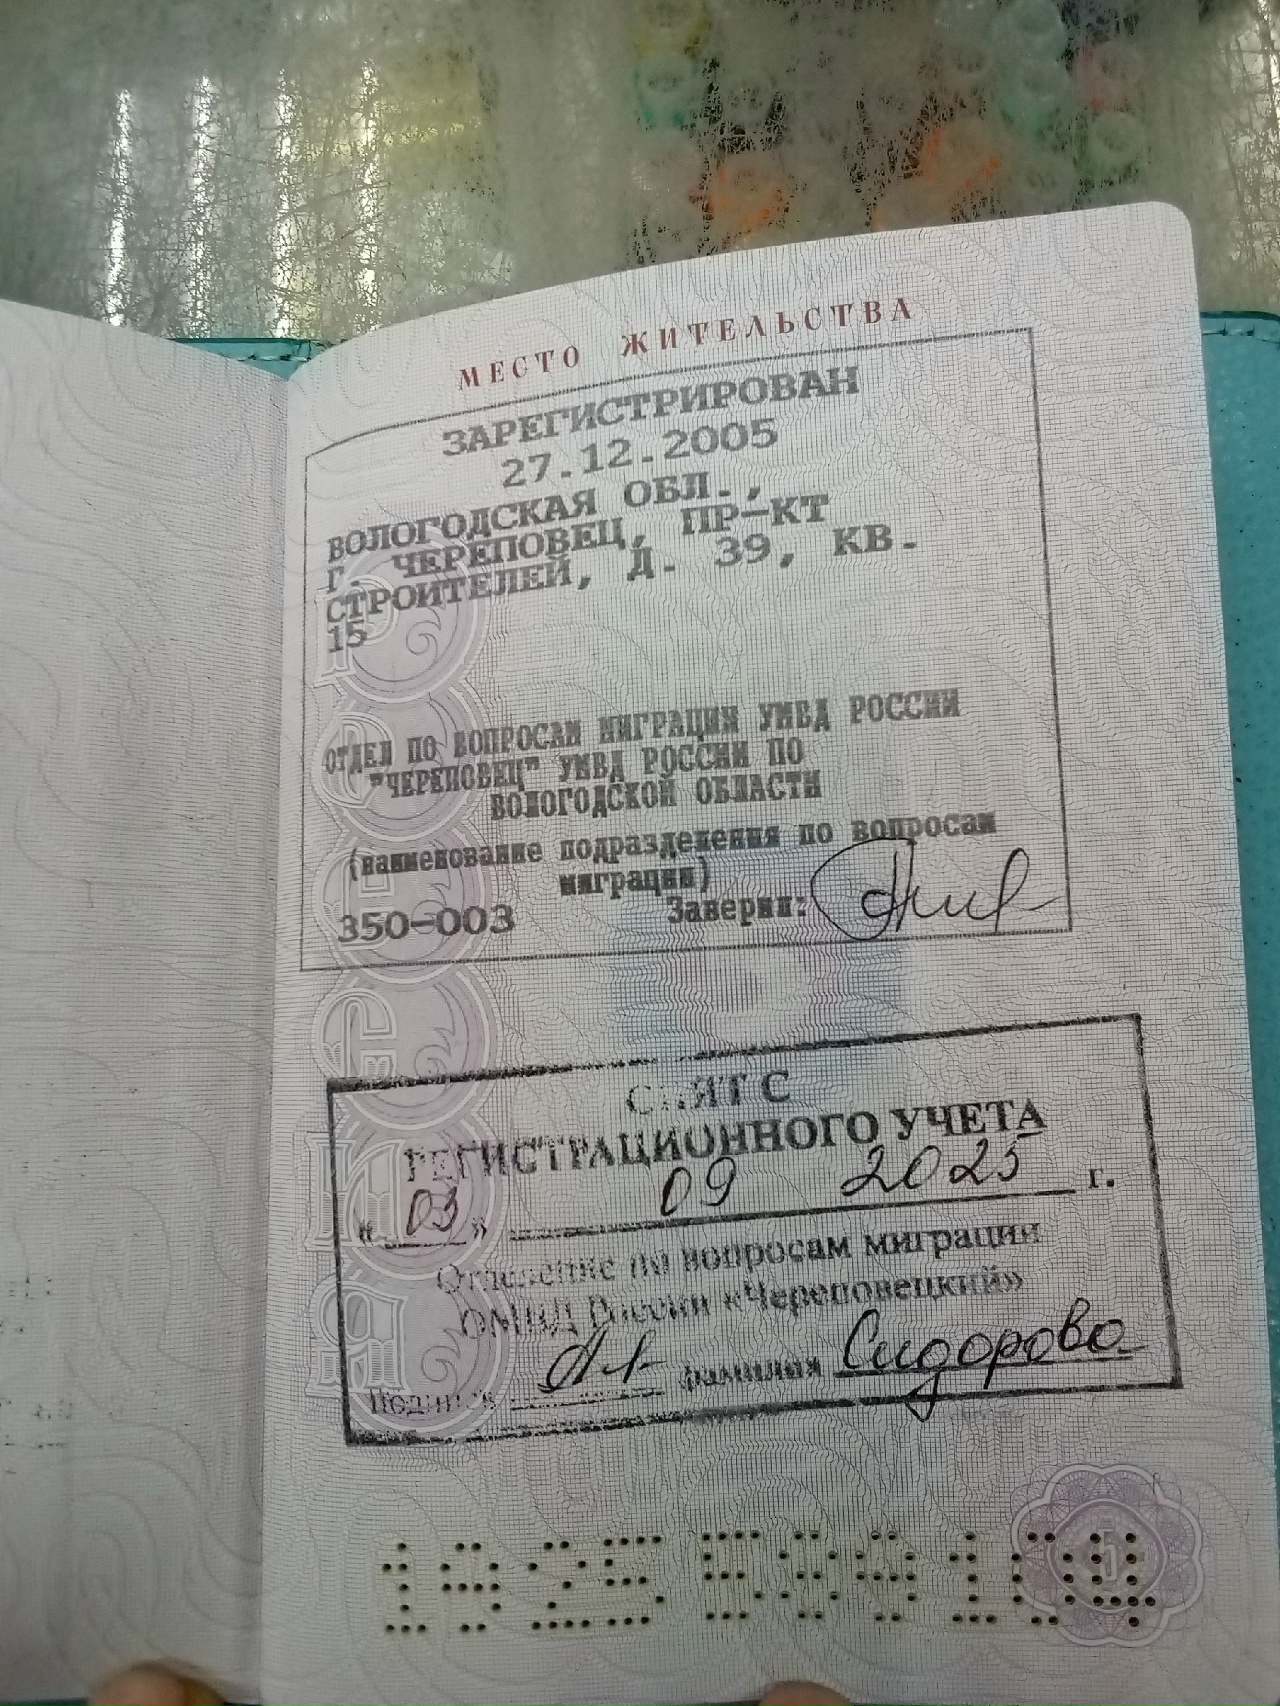 МЕСТО ЖИТЕЛЬСТВА
ЗАРЕГИСТРИРОВАН
27.12.2005
ВОЛОГОДСКАЯ ОБЛ.,
Г. ЧЕРЕПОВЕЦ, ПР-КТ
СТРОИТЕЛЕЙ, Д. 39, КВ.
15
ОТДЕЛ ПО ВОПРОСАМ МИГРАЦИИ УМВД РОССИИ
"ЧЕРЕПОВЕЦ" УМВД РОССИИ ПО
ВОЛОГОДСКОЙ ОБЛАСТИ
(наименование подразделения по вопросам
миграции)
350-003 Заверил:
СНЯТ С
РЕГИСТРАЦИОННОГО УЧЕТА
« 03 » 09 2025 г.
Отделение по вопросам миграции
ОМВД России «Череповецкий»
Подпись фамилия Сидорова
РОССИЯ
5